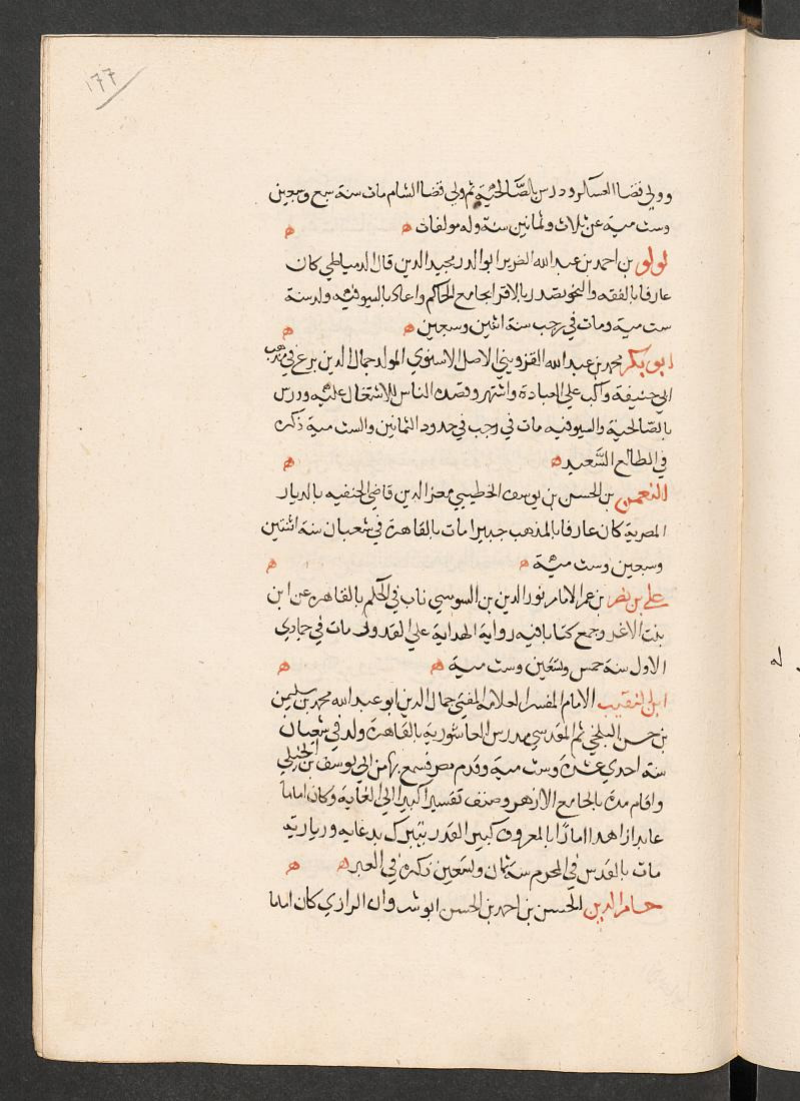 ١٧٧
وولي قضا العساكر ودرس بالصالحية ثم ولي قضا الشام مات سنة سبع وسبعين
وست مية عن ثلاث وثمانين سنة وله مولفات ه ه
لولو بن احمد بن عبد الله الضرير ابو الدر مجيد الدين قال الدمياطي كان
عارفا بالفقه والنحو تصدر بالاقرا بجامع الحاكم واعاد بالسيوفيه ولد سنة
ست مية ومات في رجب سنة اثنين وسبعين ه ه
ابو بكر محمد بن عبد الله القزويني الاصل الاسنوي المولد جمال الدين برع في مذهب
ابي حنيفة واكب علي العبادة واشتهر وقصده الناس للاشتغال عليه ودرس
بالصالحية والسيوفيه مات في رجب في حدود الثمانين والست مية ذكره
في الطالع السعيد ه ه
النعمن بن الحسن بن يوسف الخطيبي معز الدين قاضي الحنفيه بالديار
المصرية كان عارفا بالمذهب خبيرا مات بالقاهرة في شعبان سنة اثنتين
وسبعين وست مية ه ه
علي بن نصر بن عمر الامام نور الدين بن السوسي ناب في الحكم بالقاهرة عن ابن
بنت الاغر وجمع كتابا فيه رواية الهداية علي القدوري مات في جمادي
الاول سنة خمس وتسعين وست مية ه ه
ابن النقيب الامام المفسر العلامة المفتي جمال الدين ابو عبد الله محمد بن سليمن
بن حسن البلخي ثم المقدسي مدرس العاشورية بالقاهرة ولد في شعبان
سنة احدي عشرة وست مية وقدم مصر فسمع بها من ابي يوسف بن المخيلي
واقام مدة بالجامع الازهر وصنف تفسيرا كبيرا الي الغاية وكان اماما
عابدا زاهدا امارا بالمعروف كبير القدر يتبرك بدعايه وزيارته
مات بالقدس في المحرم سنة ثمان وتسعين ذكره في العبر ه ه
حسام الدين الحسن بن احمد بن الحسن ابوشروان الرازي كان اماما